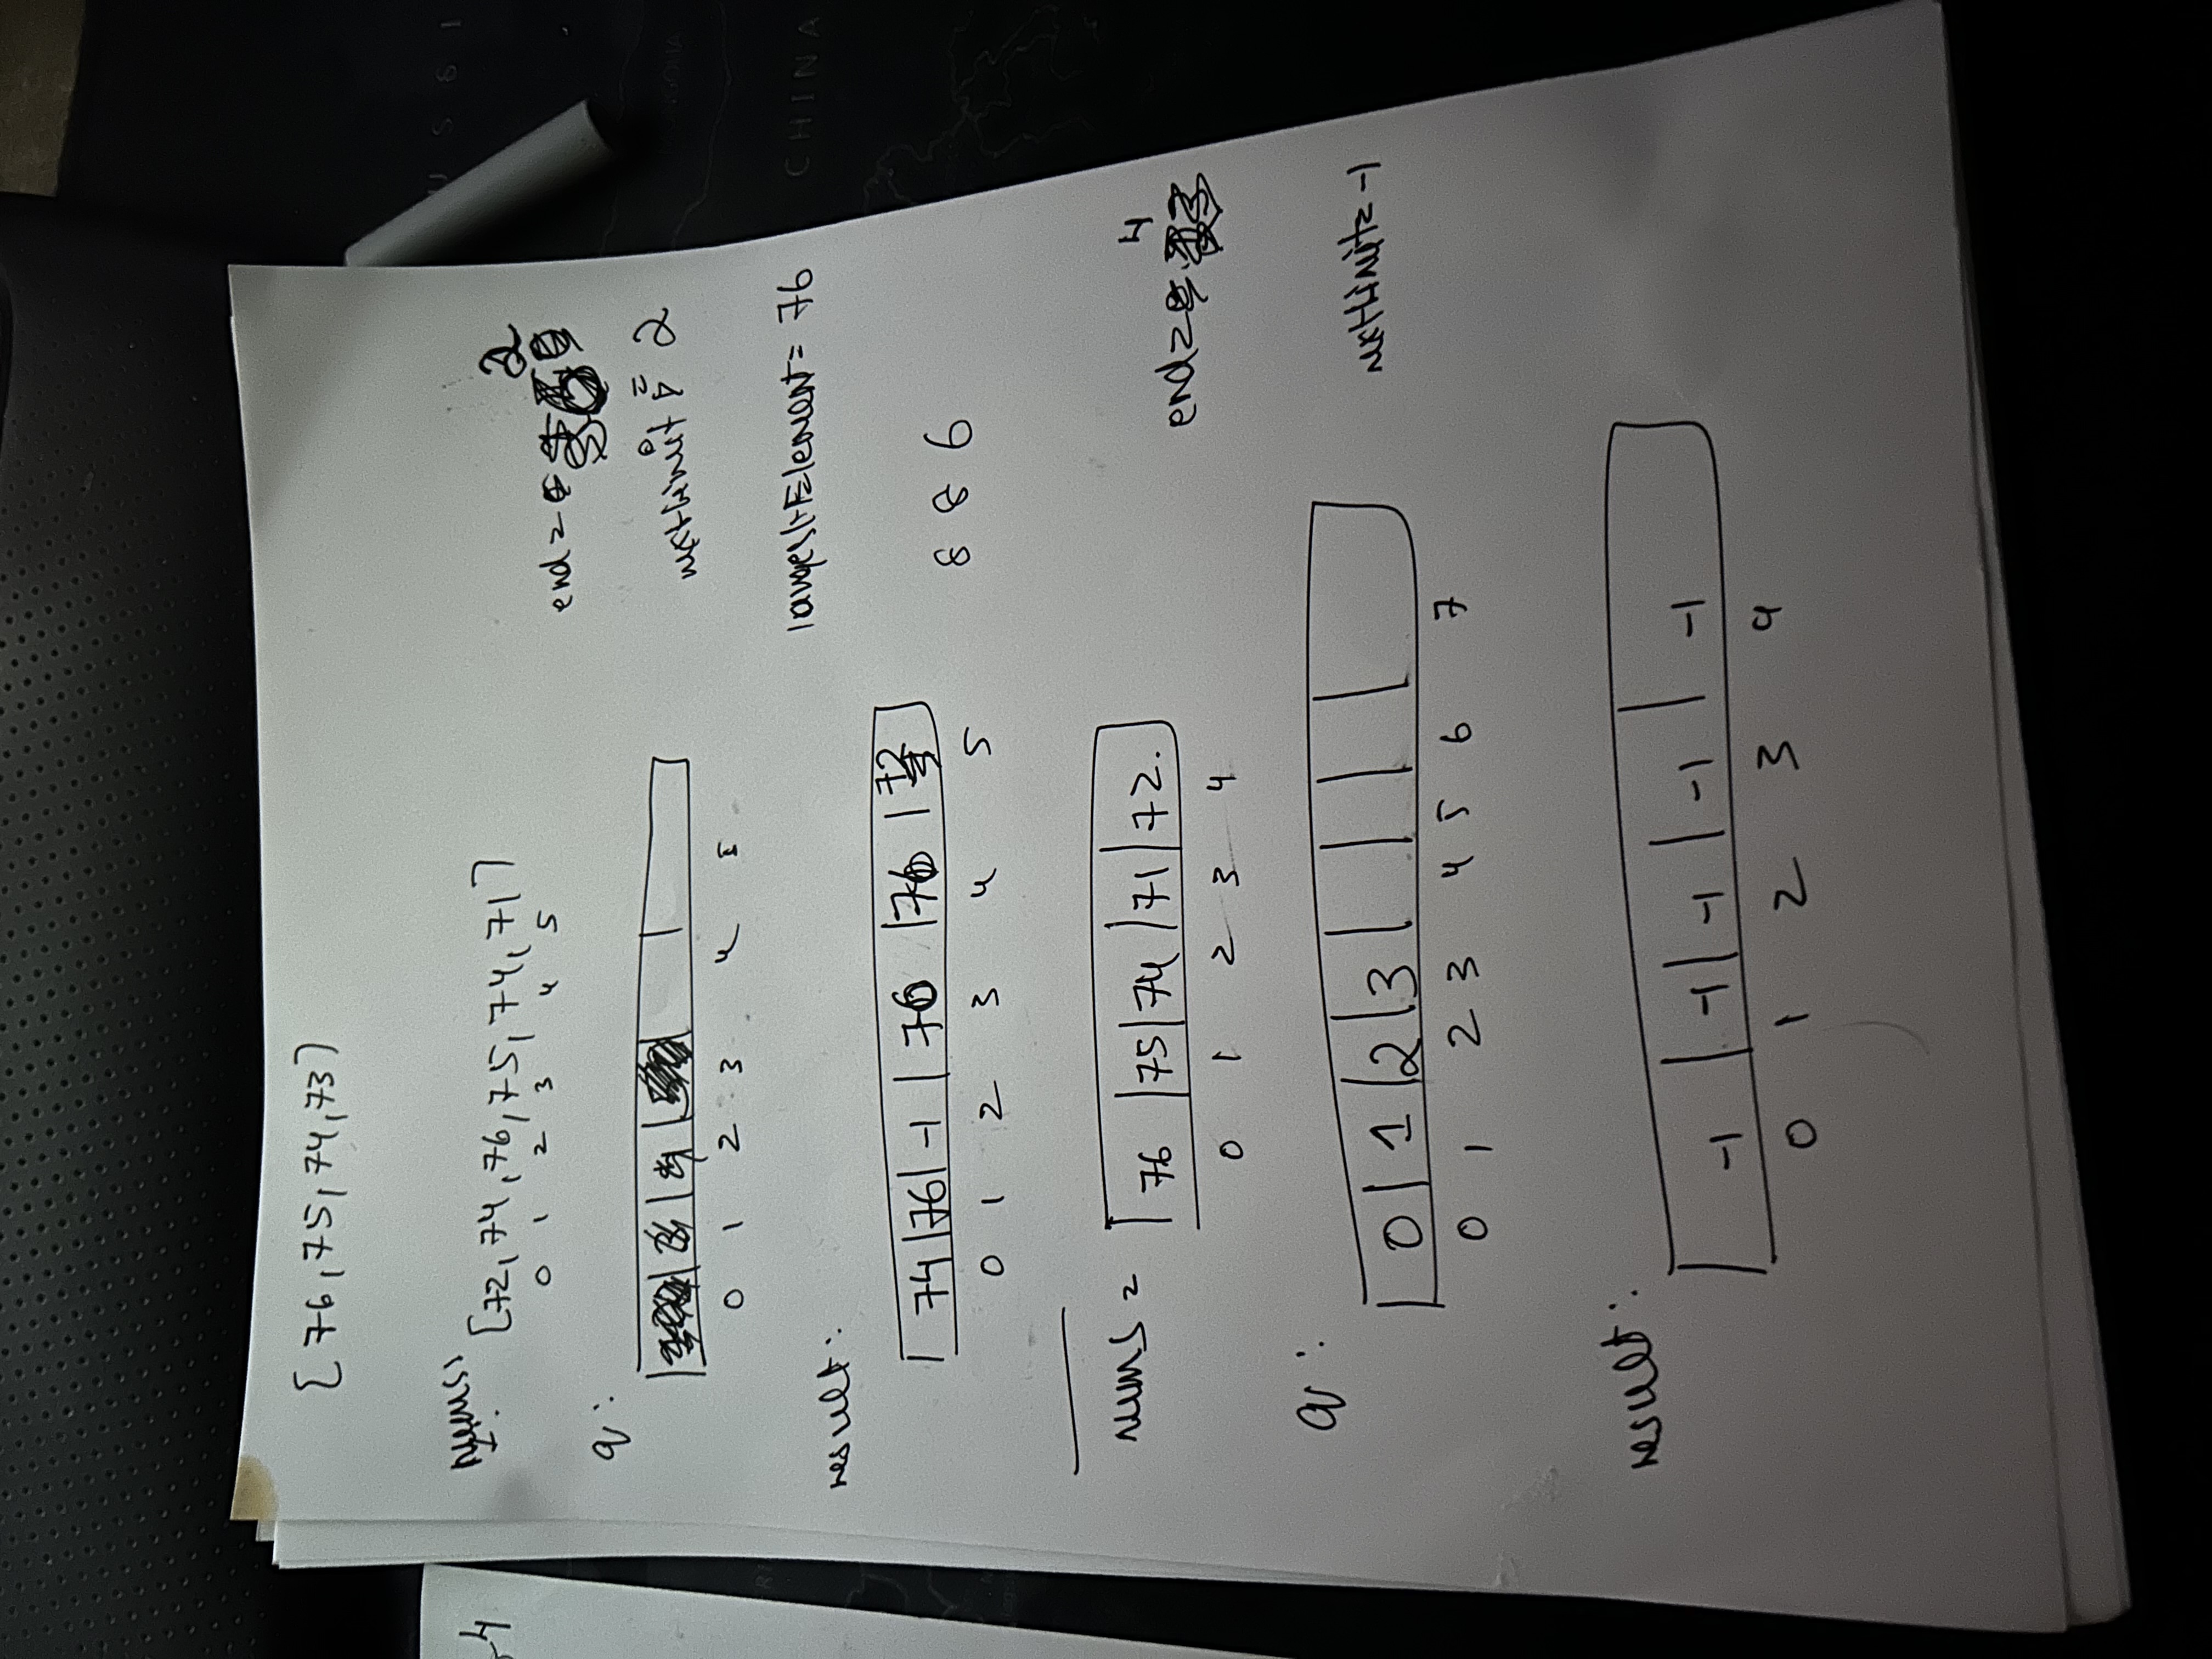 [ 76, 75, 74, 73 ]
nums:
[72, 74, 76, 75, 74, 71]
0 1 2 3 4 5
2
end =
q:
nextLimit = 2
0 1 2 3 4 5
largestElement = 76
result:
74 | 76 | -1 | 76 | 76 | 72
0 1 2 3 4 5
8 8 6
nums =
76 | 75 | 74 | 71 | 72.
0 1 2 3 4
4
end =
q:
0 | 1 | 2 | 3
0 1 2 3 4 5 6 7
nextLimit = -1
result:
-1 | -1 | -1 | -1 | -1
0 1 2 3 4
-4
U S S I
CHINA